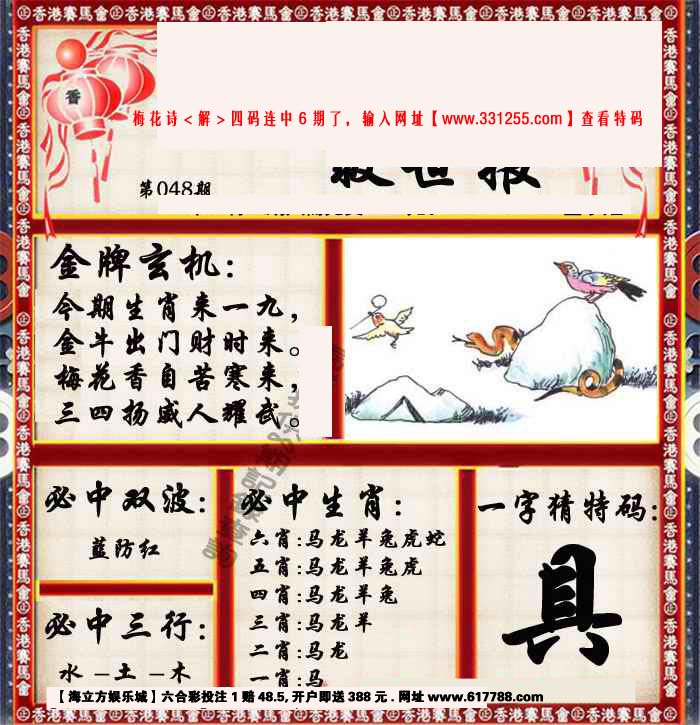 香港赛馬會 香港赛馬會 香港赛馬會 香港赛馬會 香港赛馬會 香港赛馬會
香
梅花诗<解>四码连中6期了，输入网址【www.331255.com】查看特码
救世报
第048期
金牌玄机：
今期生肖来一九，
金牛出门财时来。
梅花香自苦寒来，
三四扬威人耀武。
必中双波：
蓝防红
必中三行：
水－土－木
必中生肖：
六肖:马龙羊兔虎蛇
五肖:马龙羊兔虎
四肖:马龙羊兔
三肖:马龙羊
二肖:马龙
一肖:马
一字猜特码:
具
【海立方娱乐城】六合彩投注1赔48.5,开户即送388元.网址 www.617788.com